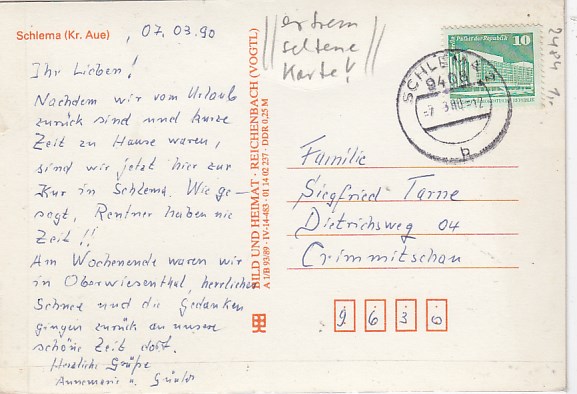 Schlema (Kr. Aue) , 07.03.90
Ihr Lieben!
Nachdem wir vom Urlaub
zurück sind und kurze
Zeit zu Hause waren,
sind wir jetzt hier zur
Kur in Schlema. Wie ge-
sagt, Rentner haben nie
Zeit!!
Am Wochenende waren wir
in Oberwiesenthal, herrlicher
Schnee und die Gedanken
gingen zurück an unsere
schöne Zeit dort.
Herzliche Grüße
Annemarie u. Günter
BILD UND HEIMAT · REICHENBACH (VOGTL)
A 1/B 93/89 · IV-14-483 · 01 14 02 237 · DDR 0,25 M
extrem
seltene
Karte!
Palast der Republik 10
SCHLEMA 3
9408
-7. 3.90-12
b
2484
Familie
Siegfried Tarne
Dietrichsweg 04
Crimmitschau
9 6 3 0